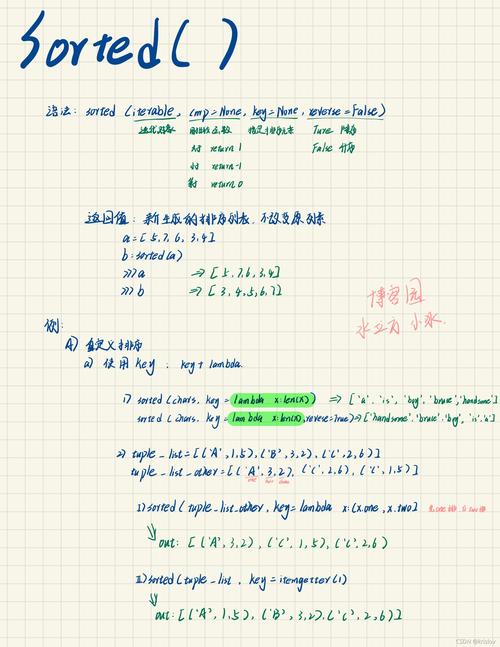 Sorted()
语法: sorted (iterable, cmp=None, key=None, reverse=False)
迭代对象 比较函数 指定排序元素 Ture 降序
大于 return 1 False 升序
小于 return -1
等于 return 0
返回值: 新生成的排序列表, 不改变原列表
a=[5,7,6,3,4]
b=sorted(a)
>>>a => [5,7,6,3,4]
>>>b => [3,4,5,6,7]
博客园
水立方 小水.
例:
A) 自定义排序
a) 使用 key : key + lambda.
1) sorted (chars, key = lambda x:len(x)) => ['a', 'is', 'boy', 'bruce', 'handsome']
sorted (chars, key = lambda x:len(x), revese=True) => ['handsome', 'bruce', 'boy', 'is', 'a']
2) tuple_list = [('A',1,5),('B',3,2),('C',2,6)]
tuple_list_other = [('A',3,2),('C',2,6),('C',1,5)]
one two
I) sorted (tuple_list_other, key=lambda x:(x.one, x.two)]
out: [('A',3,2),('C',1,5),('C',2,6)
II) sorted (tuple_list, key = itemgetter(1)
out: [('A',1,5),('B',3,2),('C',2,6)]